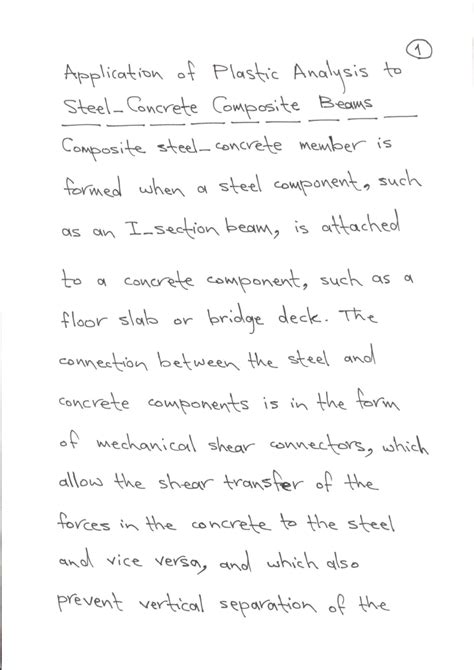 1
Application of Plastic Analysis to
Steel-Concrete Composite Beams
Composite steel-concrete member is
formed when a steel component, such
as an I-section beam, is attached
to a concrete component, such as a
floor slab or bridge deck. The
connection between the steel and
concrete components is in the form
of mechanical shear connectors, which
allow the shear transfer of the
forces in the concrete to the steel
and vice versa, and which also
prevent vertical separation of the